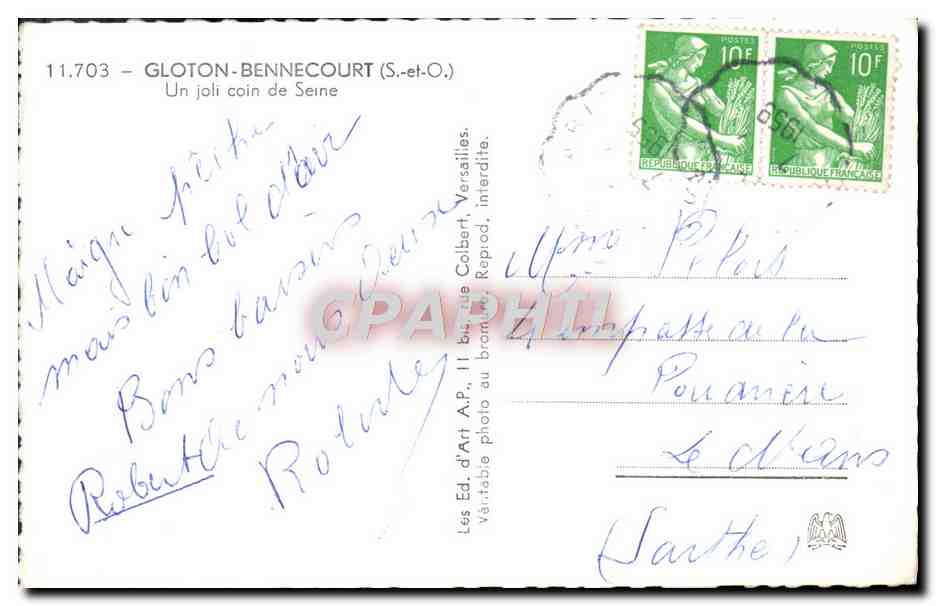 11.703 - GLOTON-BENNECOURT (S.-et-O.)
Un joli coin de Seine
Maigre pêche
mais bon bol d'air
Bons baisers
de nous deux
Robert
Les Ed. d'Art A.P., 11 bis, rue Colbert, Versailles.
Véritable photo au bromure. Reprod. interdite.
POSTES
10F
REPUBLIQUE FRANÇAISE
POSTES
10F
REPUBLIQUE FRANÇAISE
1958
1958
CPAPHIL
Mme
impasse de la
Le Mans
(Sarthe)